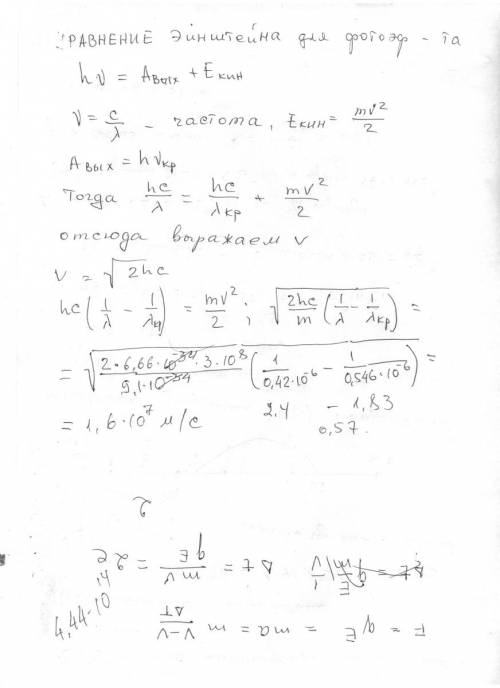 УРАВНЕНИЕ Эйнштейна для фотоэф-та
hν = Aвых + Eкин
ν = c/λ - частота, Eкин = mv²/2
Aвых = hνкр
Тогда hc/λ = hc/λкр + mv²/2
отсюда выражаем v
v = √2hc
hc(1/λ - 1/λкр) = mv²/2; √(2hc/m (1/λ - 1/λкр)) =
= √(2·6,66·10⁻³⁴·3·10⁸/9,1·10⁻³⁴ (1/0,42·10⁻⁶ - 1/0,546·10⁻⁶)) =
= 1,6·10⁷ м/с 2,4 - 1,83
0,57
2
F = qE = ma = m v-v/ΔT
Δt = mv/qE = 2
4,44·10